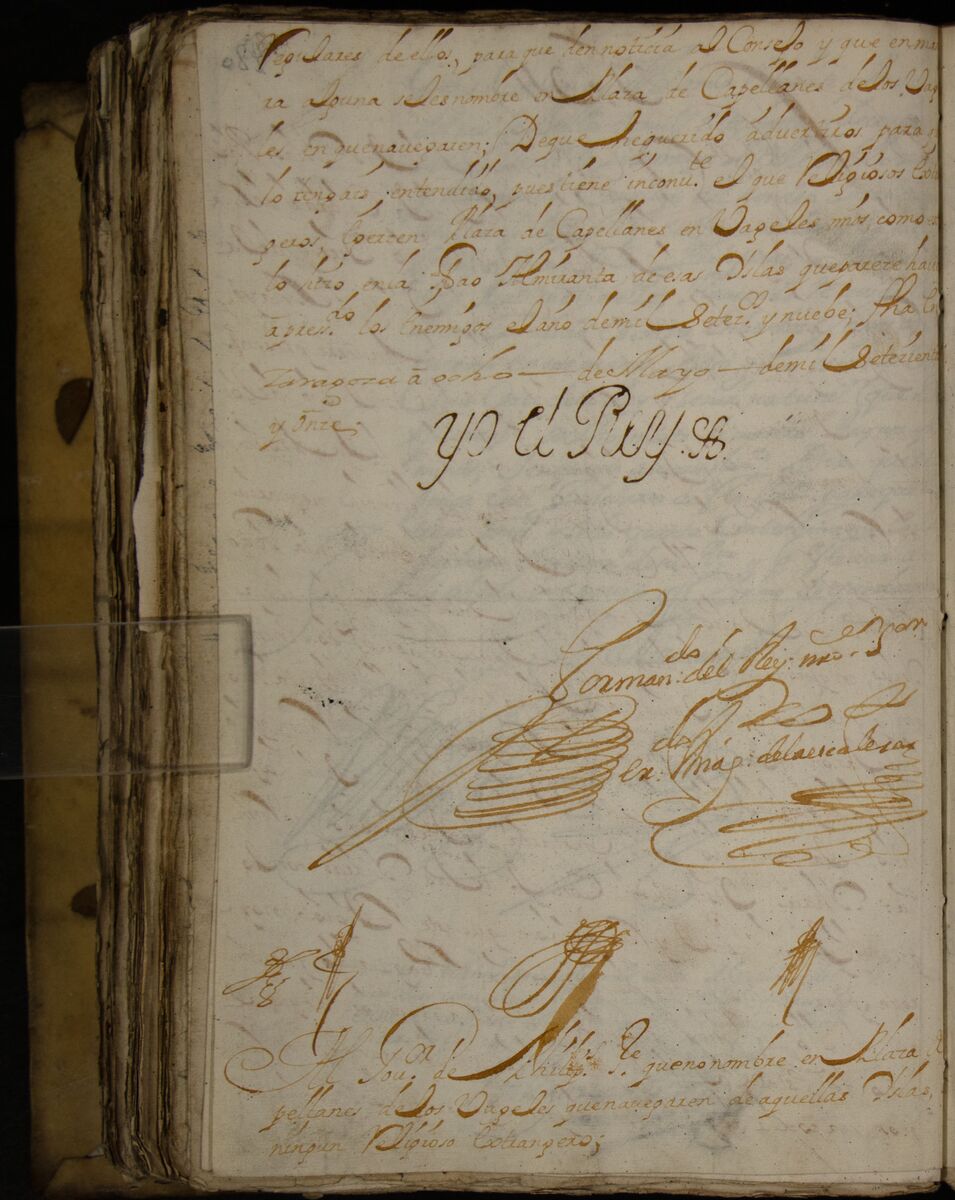 Regulares de ellos, para que den noticia al Consejo y que en ma
ra alguna se les nombre en Plaza de Capellanes de los Vag
les en que navegaren; De que he querido advertiros para
lo tengais entendido, pues tiene inconv.te el que Religiosos
geros, exercen Plaza de Capellanes en Vageles mios, como
lo hizo en la Almiranta de esas Yslas que parece hav
apres.do los Enemigos el año de mil Seter.os y nuebe; fha En
Zaragoza à ocho de Mayo de mil Setecient
y onze;
yo el Rey
Por man.do del Rey nro S.or
de la escalera
Al Gov.or de Philip.s S.re que no nombre en Plaza
pellanes de los Vageles que navegaren de aquellas Yslas,
ningun Religioso Extrangero;